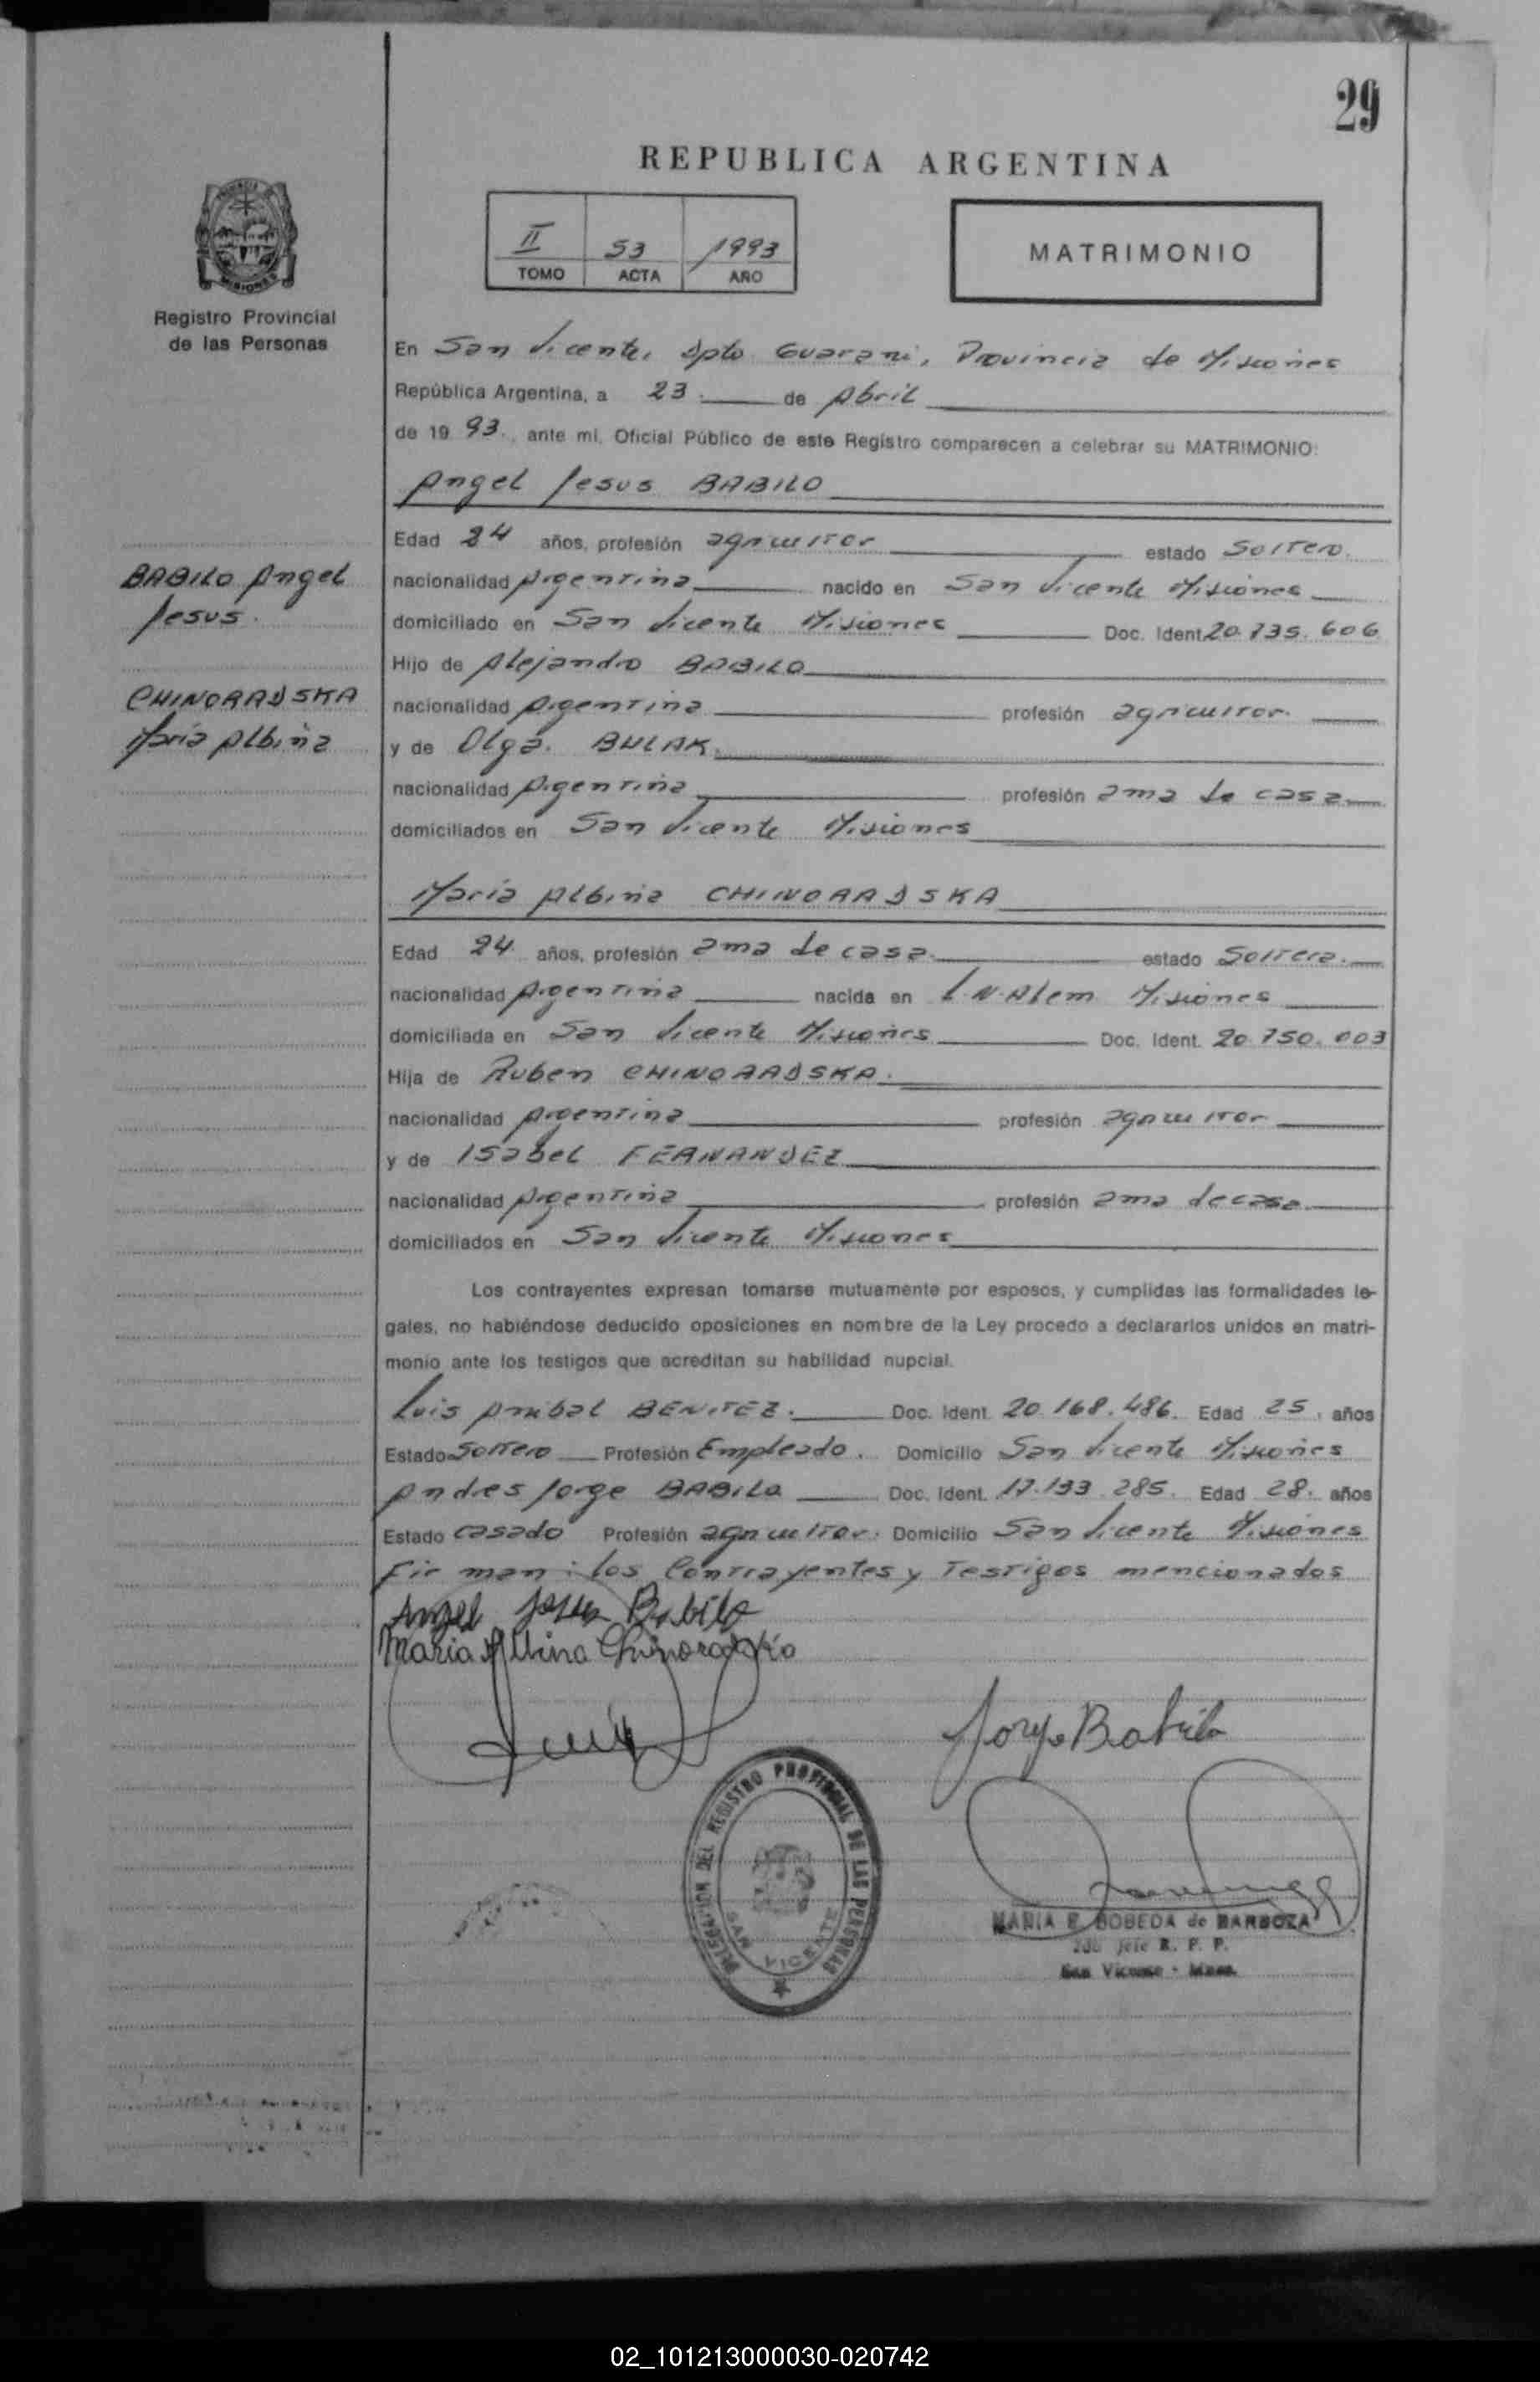 29
REPUBLICA ARGENTINA
II 53 1993
TOMO ACTA AÑO
MATRIMONIO
MISIONES
Registro Provincial
de las Personas
En San Vicente, dpto Guarani, Provincia de Misiones
República Argentina, a 23 de Abril
de 19 93., ante mi, Oficial Público de este Registro comparecen a celebrar su MATRIMONIO:
Angel Jesus BABILO
Edad 24 años, profesión agricultor estado Soltero.
BABILO Angel
Jesus.
nacionalidad Argentina nacido en San Vicente Misiones
domiciliado en San Vicente Misiones Doc. Ident. 20.735.606
Hijo de Alejandro BABILO
CHINORADSKA
Maria Albina
nacionalidad Argentina profesión agricultor.
y de Olga. BULAK.
nacionalidad Argentina profesión ama de casa
domiciliados en San Vicente Misiones
Maria Albina CHINORADSKA
Edad 24 años, profesión ama de casa. estado Soltera.
nacionalidad Argentina nacida en L.N.Alem Misiones
domiciliada en San Vicente Misiones Doc. Ident. 20.750.003
Hija de Ruben CHINORADSKA.
nacionalidad Argentina profesión agricultor
y de Isabel FERNANDEZ
nacionalidad Argentina profesión ama de casa
domiciliados en San Vicente Misiones
Los contrayentes expresan tomarse mutuamente por esposos, y cumplidas las formalidades le-
gales, no habiéndose deducido oposiciones en nombre de la Ley procedo a declararlos unidos en matri-
monio ante los testigos que acreditan su habilidad nupcial.
Luis Anibal BENITEZ. Doc. Ident. 20.168.486. Edad 25, años
Estado Soltero Profesión Empleado. Domicilio San Vicente Misiones
Andres Jorge BABILO Doc. Ident. 17.133.285. Edad 28. años
Estado casado Profesión agricultor. Domicilio San Vicente Misiones
Firman: los Contrayentes y Testigos mencionados
Angel Jesus Babilo
Maria Albina Chinoradska
Jorge Babilo
DELEGACION DEL REGISTRO PROVINCIAL DE LAS PERSONAS
SAN VICENTE
MARIA E. BOBEDA de BARBOZA
2do Jefe R. P. P.
San Vicente - Mnes.
02_101213000030-020742